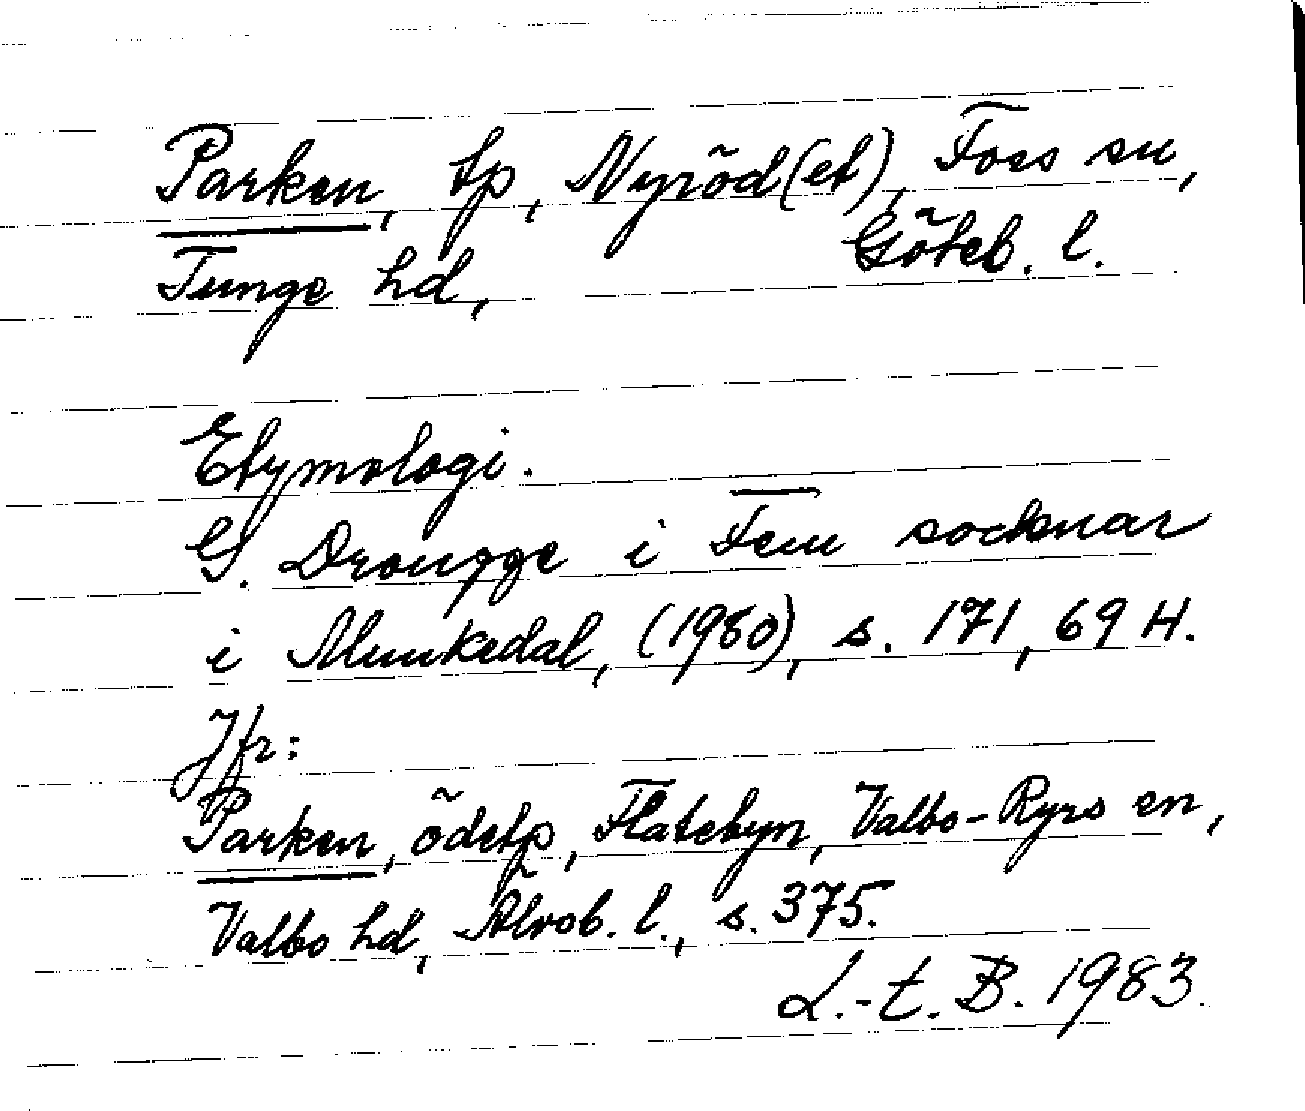 Parken, tp, Nyröd(et), Foss sn,
Tunge hd, Göteb. l.
Etymologi.
G. Drougge i Fem socknar
i Munkedal, (1980), s. 171, 69 H.
Jfr:
Parken, ödetp, Flatebyn, Valbo-Ryrs sn,
Valbo hd, Älvsb. l., s. 375.
L.-E. B. 1983.